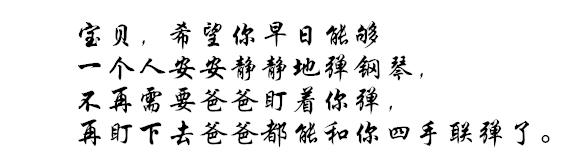 宝贝，希望你早日能够
一个人安安静静地弹钢琴，
不再需要爸爸盯着你弹，
再盯下去爸爸都能和你四手联弹了。